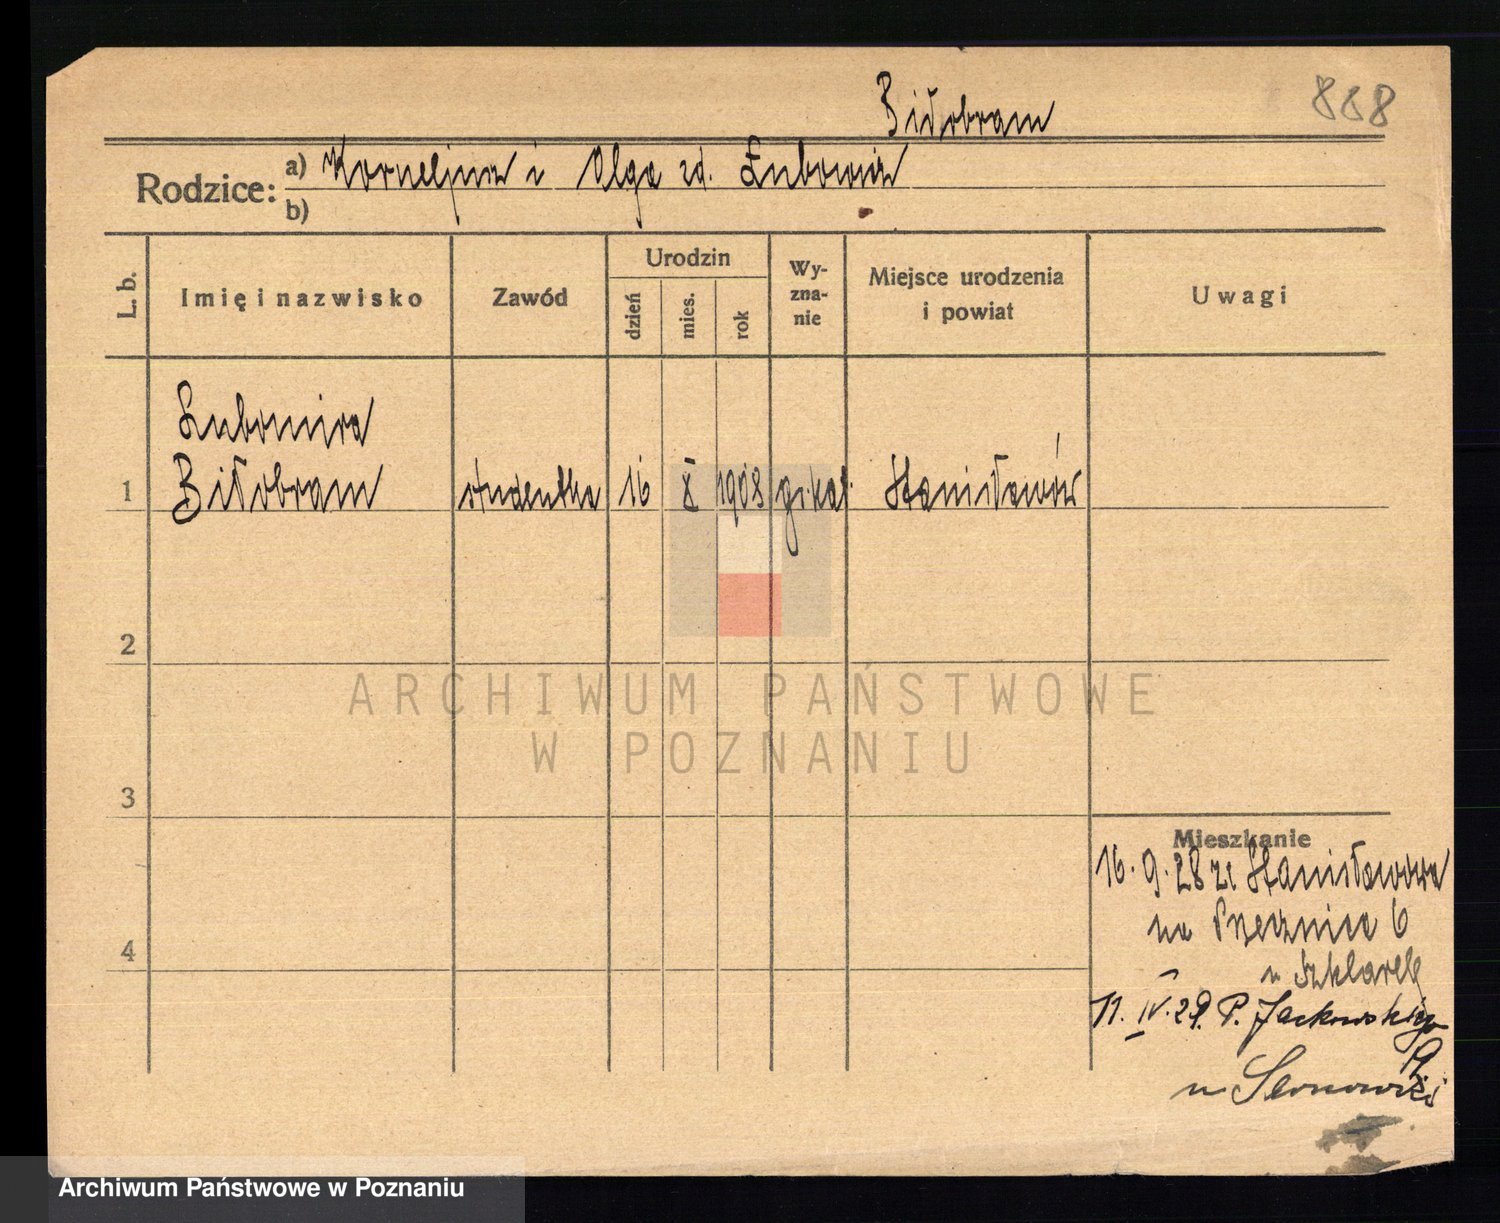 Biłobram
888
Rodzice: a) Korneljusz i Olga zd. Łubowicz
b)
L. b. Imię i nazwisko Zawód Urodzin dzień mies. rok Wy-zna-nie Miejsce urodzenia i powiat Uwagi
Lubomira
1 Biłobram studentka 16 X 1908 gr. kat. Stanisławów
2
ARCHIWUM PAŃSTWOWE
W POZNANIU
3
Mieszkanie
16. 9. 28 ze Stanisławowa
na 6
4
u Szklarek
11. IV. 29. P. Jackowskiego
9
u
Archiwum Państwowe w Poznaniu